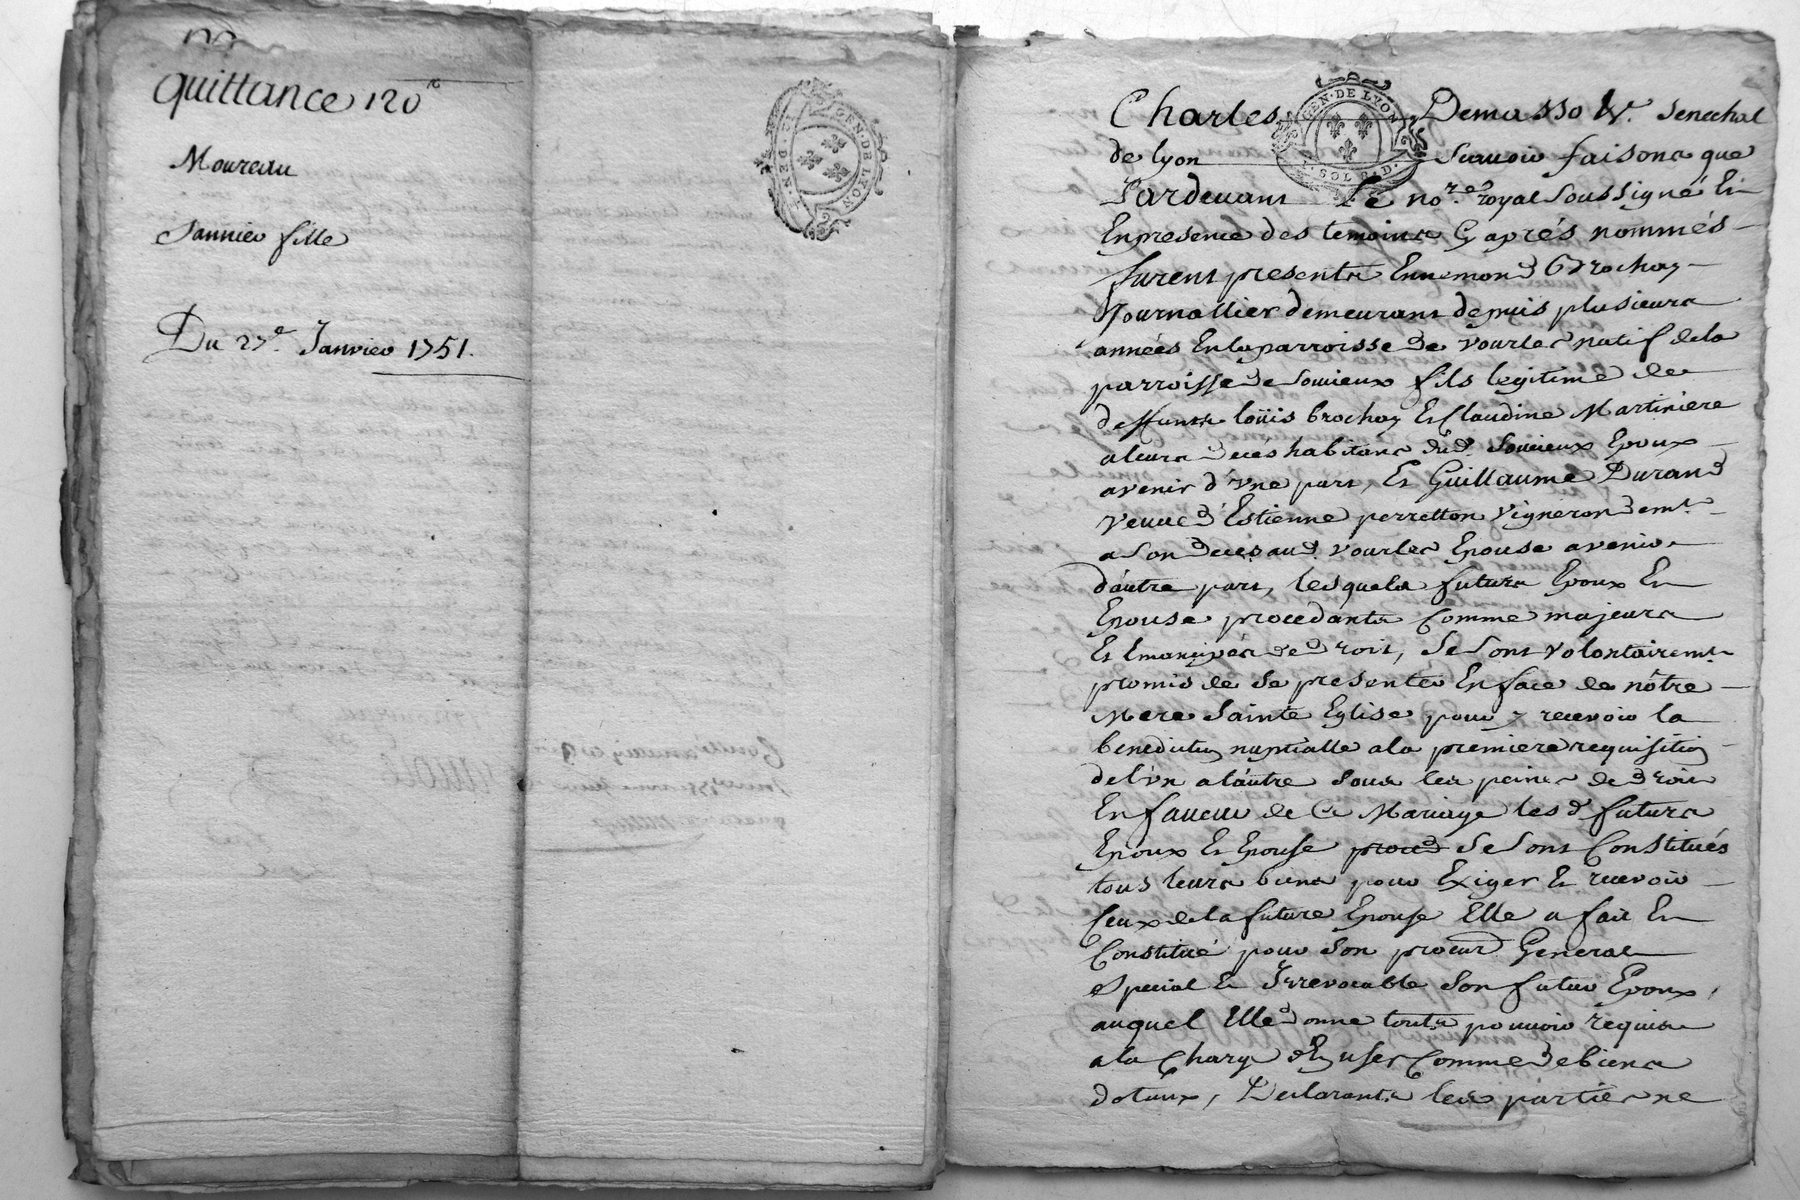 Quittance 120
Moureau
Jannier fille
Du 27e. Janvier 1751.
GEN. DE LYON
GEN. DE LYON
SOL
D.
Charles Demasso Sr. Senechal
de lyon Scavoir faisons que
Pardevant Le nore. royal Soussigné Et
En presence des temoins Cy aprés nommés
furent presents Ennemond Brochay
Journallier demeurant depuis plusieurs
années En la parroisse de Vourles natif de la
parroisse de Soucieux fils legitime de
deffunts loüis brochay Et Claudine Martiniere
a leurs decés habitans dud. Soucieux Epoux
avenir d'vne part, Et Guillaume Durand
veuve d'Estienne perretton Vigneron demt.
a Son decés aud. vourles Epouse avenir
d'autre part, lesquels futurs Epoux Et
Epouse procedants Comme majeurs
Et Emancipés de droit, Se Sont volontairemt.
promis de Se presenter En face de nôtre
Mere Sainte Eglise pour y recevoir la
benediction nuptialle a la premiere requisition
de l'vn a l'autre Sous les peines de droit
En faveur de Ce Mariage les d. futurs
Epoux Et Epouse proced Se Sont Constitués
tous leurs biens pour Exiger Et recevoir
Ceux de la future Epouse Elle a fait Et
Constitué pour Son procur General
Special Et Irrevocable Son futur Epoux,
auquel Elle donne touts pouvoir requis
a la Charge d'En user Comme de biens
dotaux, Declarants les parties ne